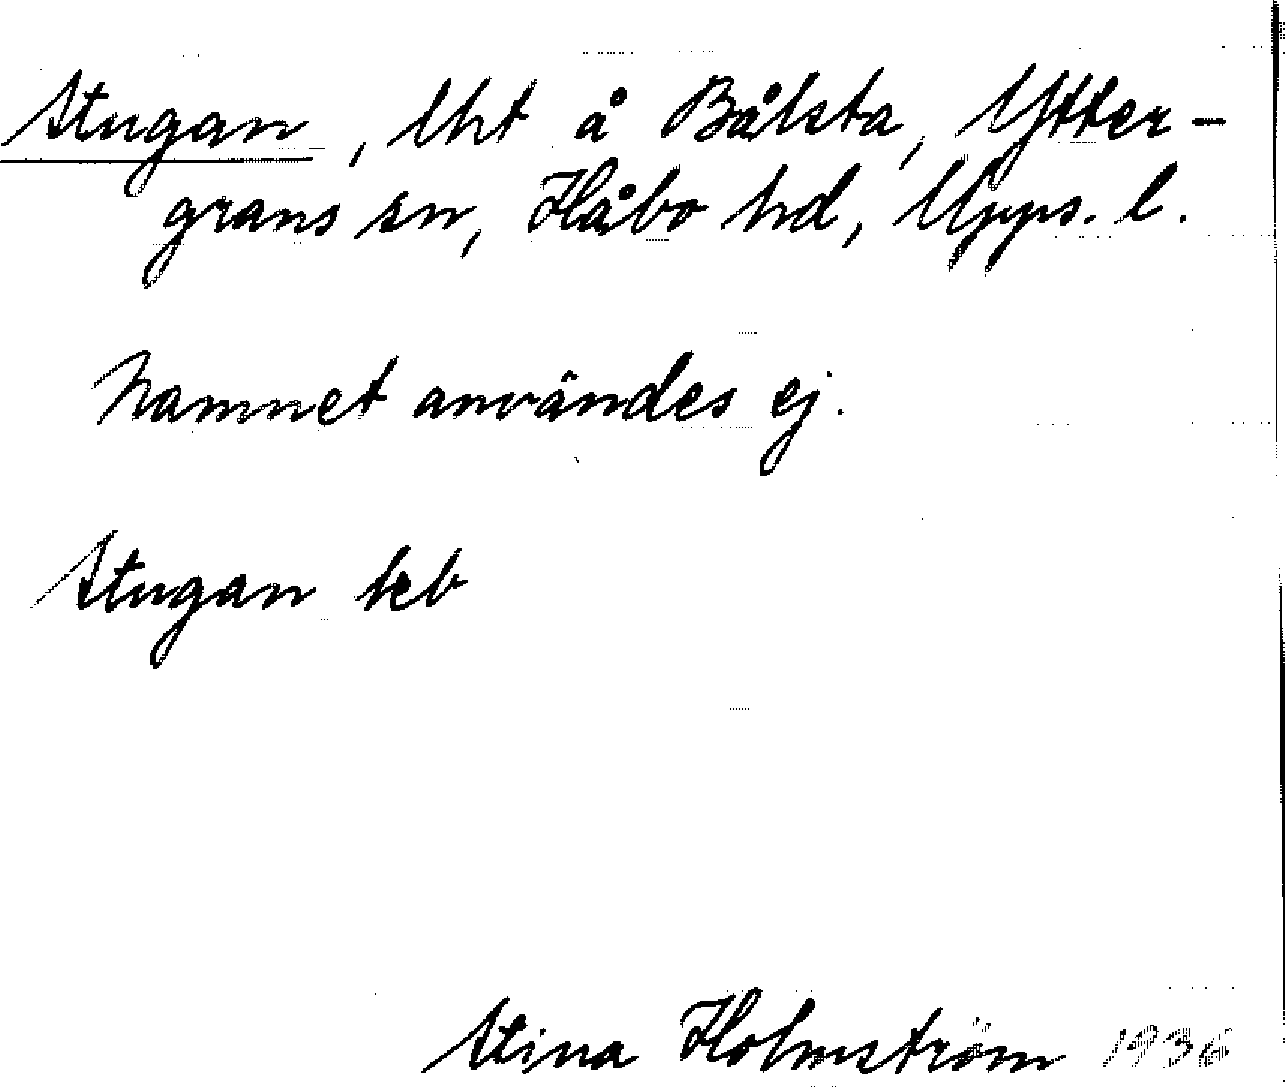 Stugan, lht å Bålsta, Ytter-
grans sn, Håbo hd, Upps. l.
Namnet användes ej.
Stugan keb
Stina Holmström 1936